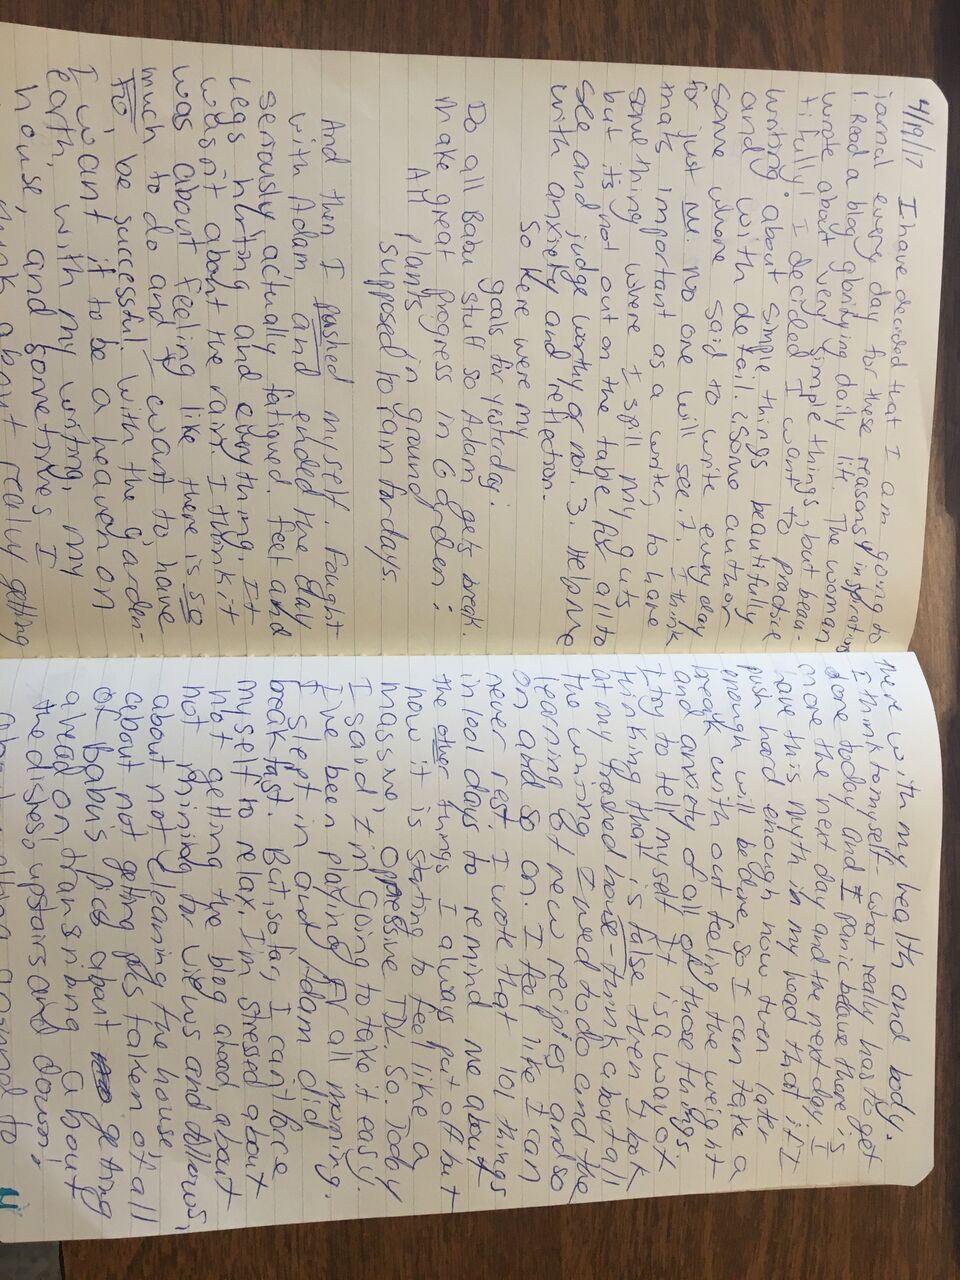 4/19/17 I have decided that I am going to
jornal every day for these reasons/inspirations
1. Read a blog glorifying daily life. The woman
wrote about very simple things, but beau-
tifully. I decided I want to practice
writing about simple things beautifully
and with detail. 2. Some author
some where said to write every day
for just me. no one will see it. I think
thats important as a writer, to have
something where I spill my guts
but its not out on the table for all to
see and judge worthy or not. 3. Help me
with anxiety and reflection.
So here were my
goals for yesterday:
Do all Babu stuff so Adam gets break.
Make great progress in Garden:
All plants in ground
supposed to rain for days.
And then I pushed myself. Fought
with Adam and ended the day
seriously actually fatigued. Feet and
Legs hurting and everything. It
wasn't about the rain. I think it
was about feeling like there is so
much to do and I want to, have
to, be successful. With the garden-
I want it to be a heaven on
earth, with my writing, my
house, and sometimes I
think about really getting
there with my health and body.
I think to myself - what really has to get
done today and I panic because there's
more the next day and the next day. I
have this myth in my head that if I
push hard enough now then later
enough will be done so I can take a
break with out feeling the weight
and anxiety of all of those things.
I try to tell myself it is a way of
thinking that is false when I look
at my trashed house - think about all
the writing I need to do and the
learning of new recipies and so
on and so on. I feel like I can
never rest. I wrote that 101 things
in 1001 days to remind me about
the other things I always put off but
now it is starting to feel like a
massive, oppressive TDL. So. Today
I said I'm going to take it easy.
I've been playing FV all morning.
I slept in and Adam did
breakfast. But so far, I can't force
myself to relax, I'm stressed about
not getting the blog ahead about
not pinning for views and follows,
about not cleaning the house,
about not getting pics taken of all
of babus pics about getting
ahead on transcribing about
the dishes, upstairs and down,